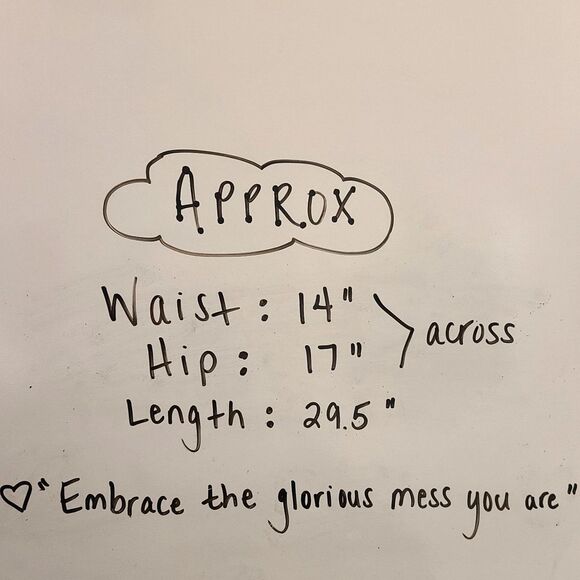 APPROX
Waist : 14"
Hip : 17"
across
Length : 29.5"
♡"Embrace the glorious mess you are"